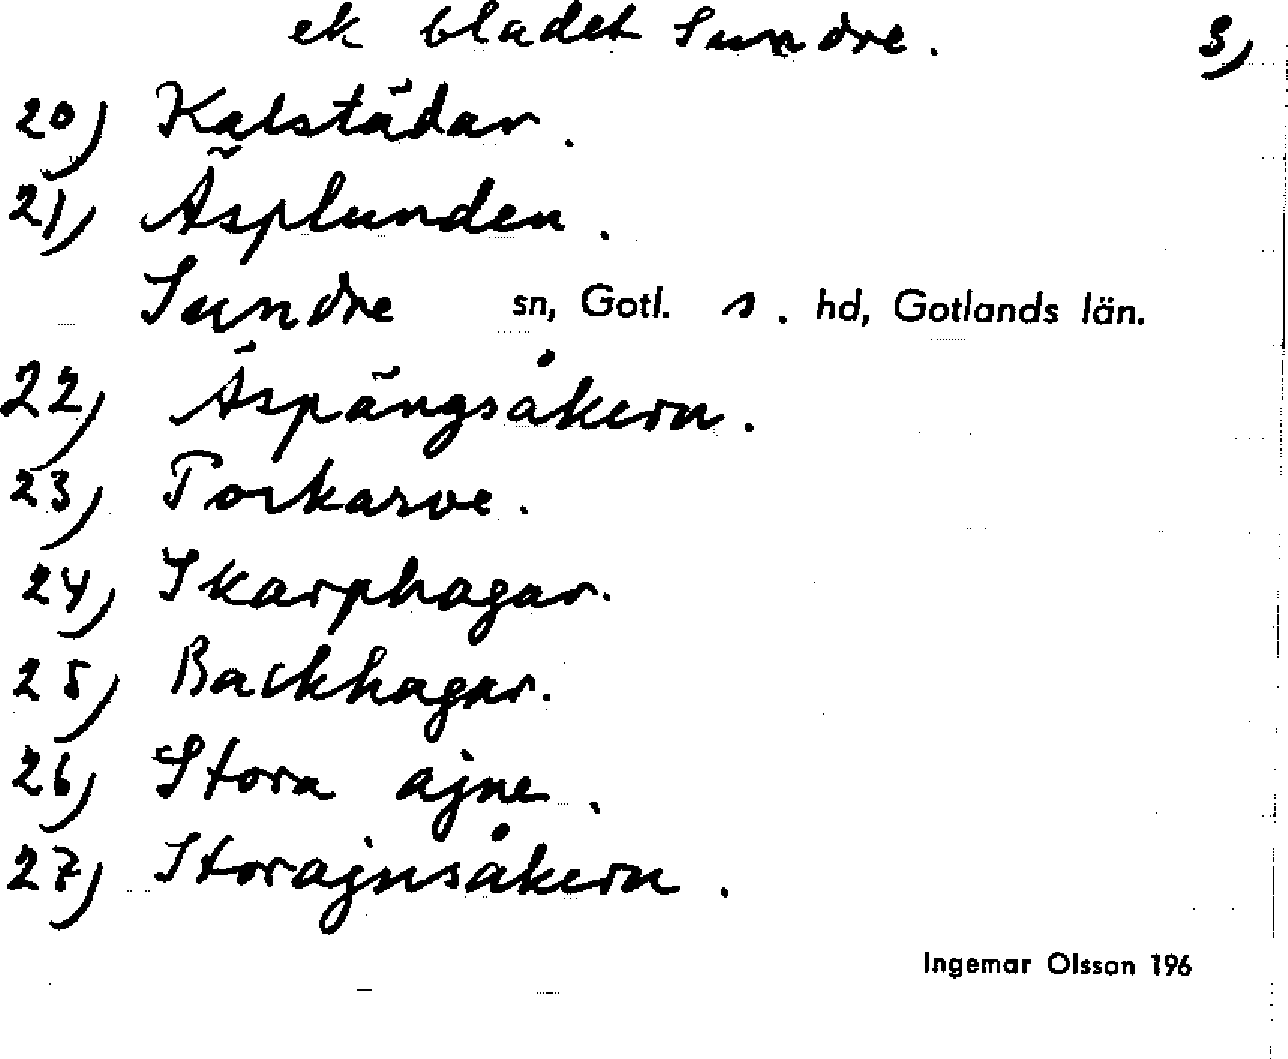 ek bladet Sundre. 3)
20) Kalstädar.
21) Äsplunden.
Sundre sn, Gotl. s. hd, Gotlands län.
22) Äspängsåkern.
23) Torkarve.
24) Skarphagar.
25) Backhagar.
26) Stora ajne.
27) Storajnsåkern.
Ingemar Olsson 196